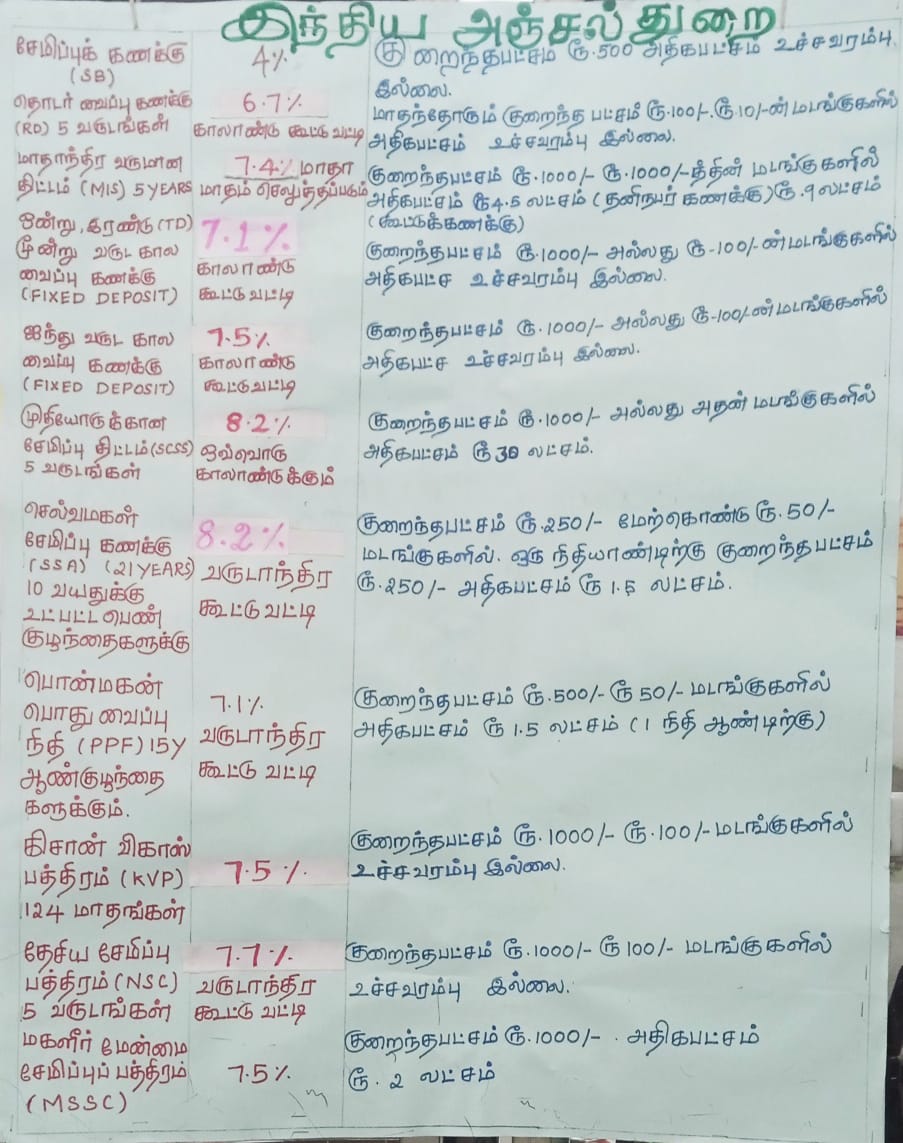 இந்திய அஞ்சல் துறை
சேமிப்புக் கணக்கு
(SB)
4%
குறைந்தபட்சம் ரூ.500 அதிகபட்சம் உச்சவரம்பு
இல்லை.
தொடர் வைப்பு கணக்கு
(RD) 5 வருடங்கள்
6.7%
காலாண்டு கூட்டு வட்டி
மாதந்தோரும் குறைந்த பட்சம் ரூ.100/-. ரூ.10/-ன் மடங்குகளில்
அதிகபட்சம் உச்சவரம்பு இல்லை.
மாதாந்திர வருமான
திட்டம் (MIS) 5 YEARS
7.4% மாதா
மாதம் செலுத்தப்படும்
குறைந்தபட்சம் ரூ.1000/- ரூ.1000/-த்தின் மடங்குகளில்
அதிகபட்சம் ரூ4.5 லட்சம் (தனிநபர் கணக்கு) ரூ.9 லட்சம்
(கூட்டுக்கணக்கு)
ஒன்று, இரண்டு (TD)
மூன்று வருட கால
வைப்பு கணக்கு
(FIXED DEPOSIT)
7.1%
காலாண்டு
கூட்டு வட்டி
குறைந்தபட்சம் ரூ.1000/- அல்லது ரூ-100/-ன் மடங்குகளில்
அதிகபட்ச உச்சவரம்பு இல்லை.
ஐந்து வருட கால
வைப்பு கணக்கு
(FIXED DEPOSIT)
7.5%
காலாண்டு
கூட்டு வட்டி
குறைந்தபட்சம் ரூ.1000/- அல்லது ரூ-100/-ன் மடங்குகளில்
அதிகபட்ச உச்சவரம்பு இல்லை.
முதியோருக்கான
சேமிப்பு திட்டம் (SCSS)
5 வருடங்கள்
8.2%
ஒவ்வொரு
காலாண்டுக்கும்
குறைந்தபட்சம் ரூ.1000/- அல்லது அதன் மடங்குகளில்
அதிகபட்சம் ரூ 30 லட்சம்.
செல்வமகள்
சேமிப்பு கணக்கு
(SSA) (21 YEARS)
10 வயதுக்கு
உட்பட்ட பெண்
குழந்தைகளுக்கு
8.2%
வருடாந்திர
கூட்டு வட்டி
குறைந்தபட்சம் ரூ.250/- மேற்கொண்டு ரூ.50/-
மடங்குகளில். ஒரு நிதியாண்டிற்கு குறைந்தபட்சம்
ரூ.250/- அதிகபட்சம் ரூ 1.5 லட்சம்.
பொன்மகன்
பொது வைப்பு
நிதி (PPF) 15Y
ஆண்குழந்தை
களுக்கும்.
7.1%
வருடாந்திர
கூட்டு வட்டி
குறைந்தபட்சம் ரூ.500/- ரூ 50/- மடங்குகளில்
அதிகபட்சம் ரூ 1.5 லட்சம் (1 நிதி ஆண்டிற்கு)
கிசான் விகாஸ்
பத்திரம் (KVP)
124 மாதங்கள்
7.5%
குறைந்தபட்சம் ரூ.1000/- ரூ.100/- மடங்குகளில்
உச்சவரம்பு இல்லை.
தேசிய சேமிப்பு
பத்திரம் (NSC)
5 வருடங்கள்
7.7%
வருடாந்திர
கூட்டு வட்டி
குறைந்தபட்சம் ரூ.1000/- ரூ 100/- மடங்குகளில்
உச்சவரம்பு இல்லை.
மகளிர் மேன்மை
சேமிப்புப் பத்திரம்
(MSSC)
7.5%
குறைந்தபட்சம் ரூ.1000/-. அதிகபட்சம்
ரூ. 2 லட்சம்